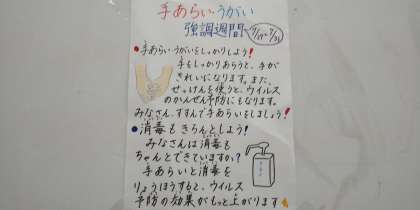 手あらい・うがい
強調週間
●手あらい・うがいをしっかりしよう!
手をしっかりあらうと、手が
きれいになります。また、
せっけんを使うと、ウイルス
のかんせん予防にもなります。
みなさん、すすんで手あらいをしましょう!
●消毒もきちんとしよう!
みなさんは消毒も
ちゃんとできていますか?
手あらいと消毒を
りょうほうすると、ウイルス
予防の効果がもっと上がります